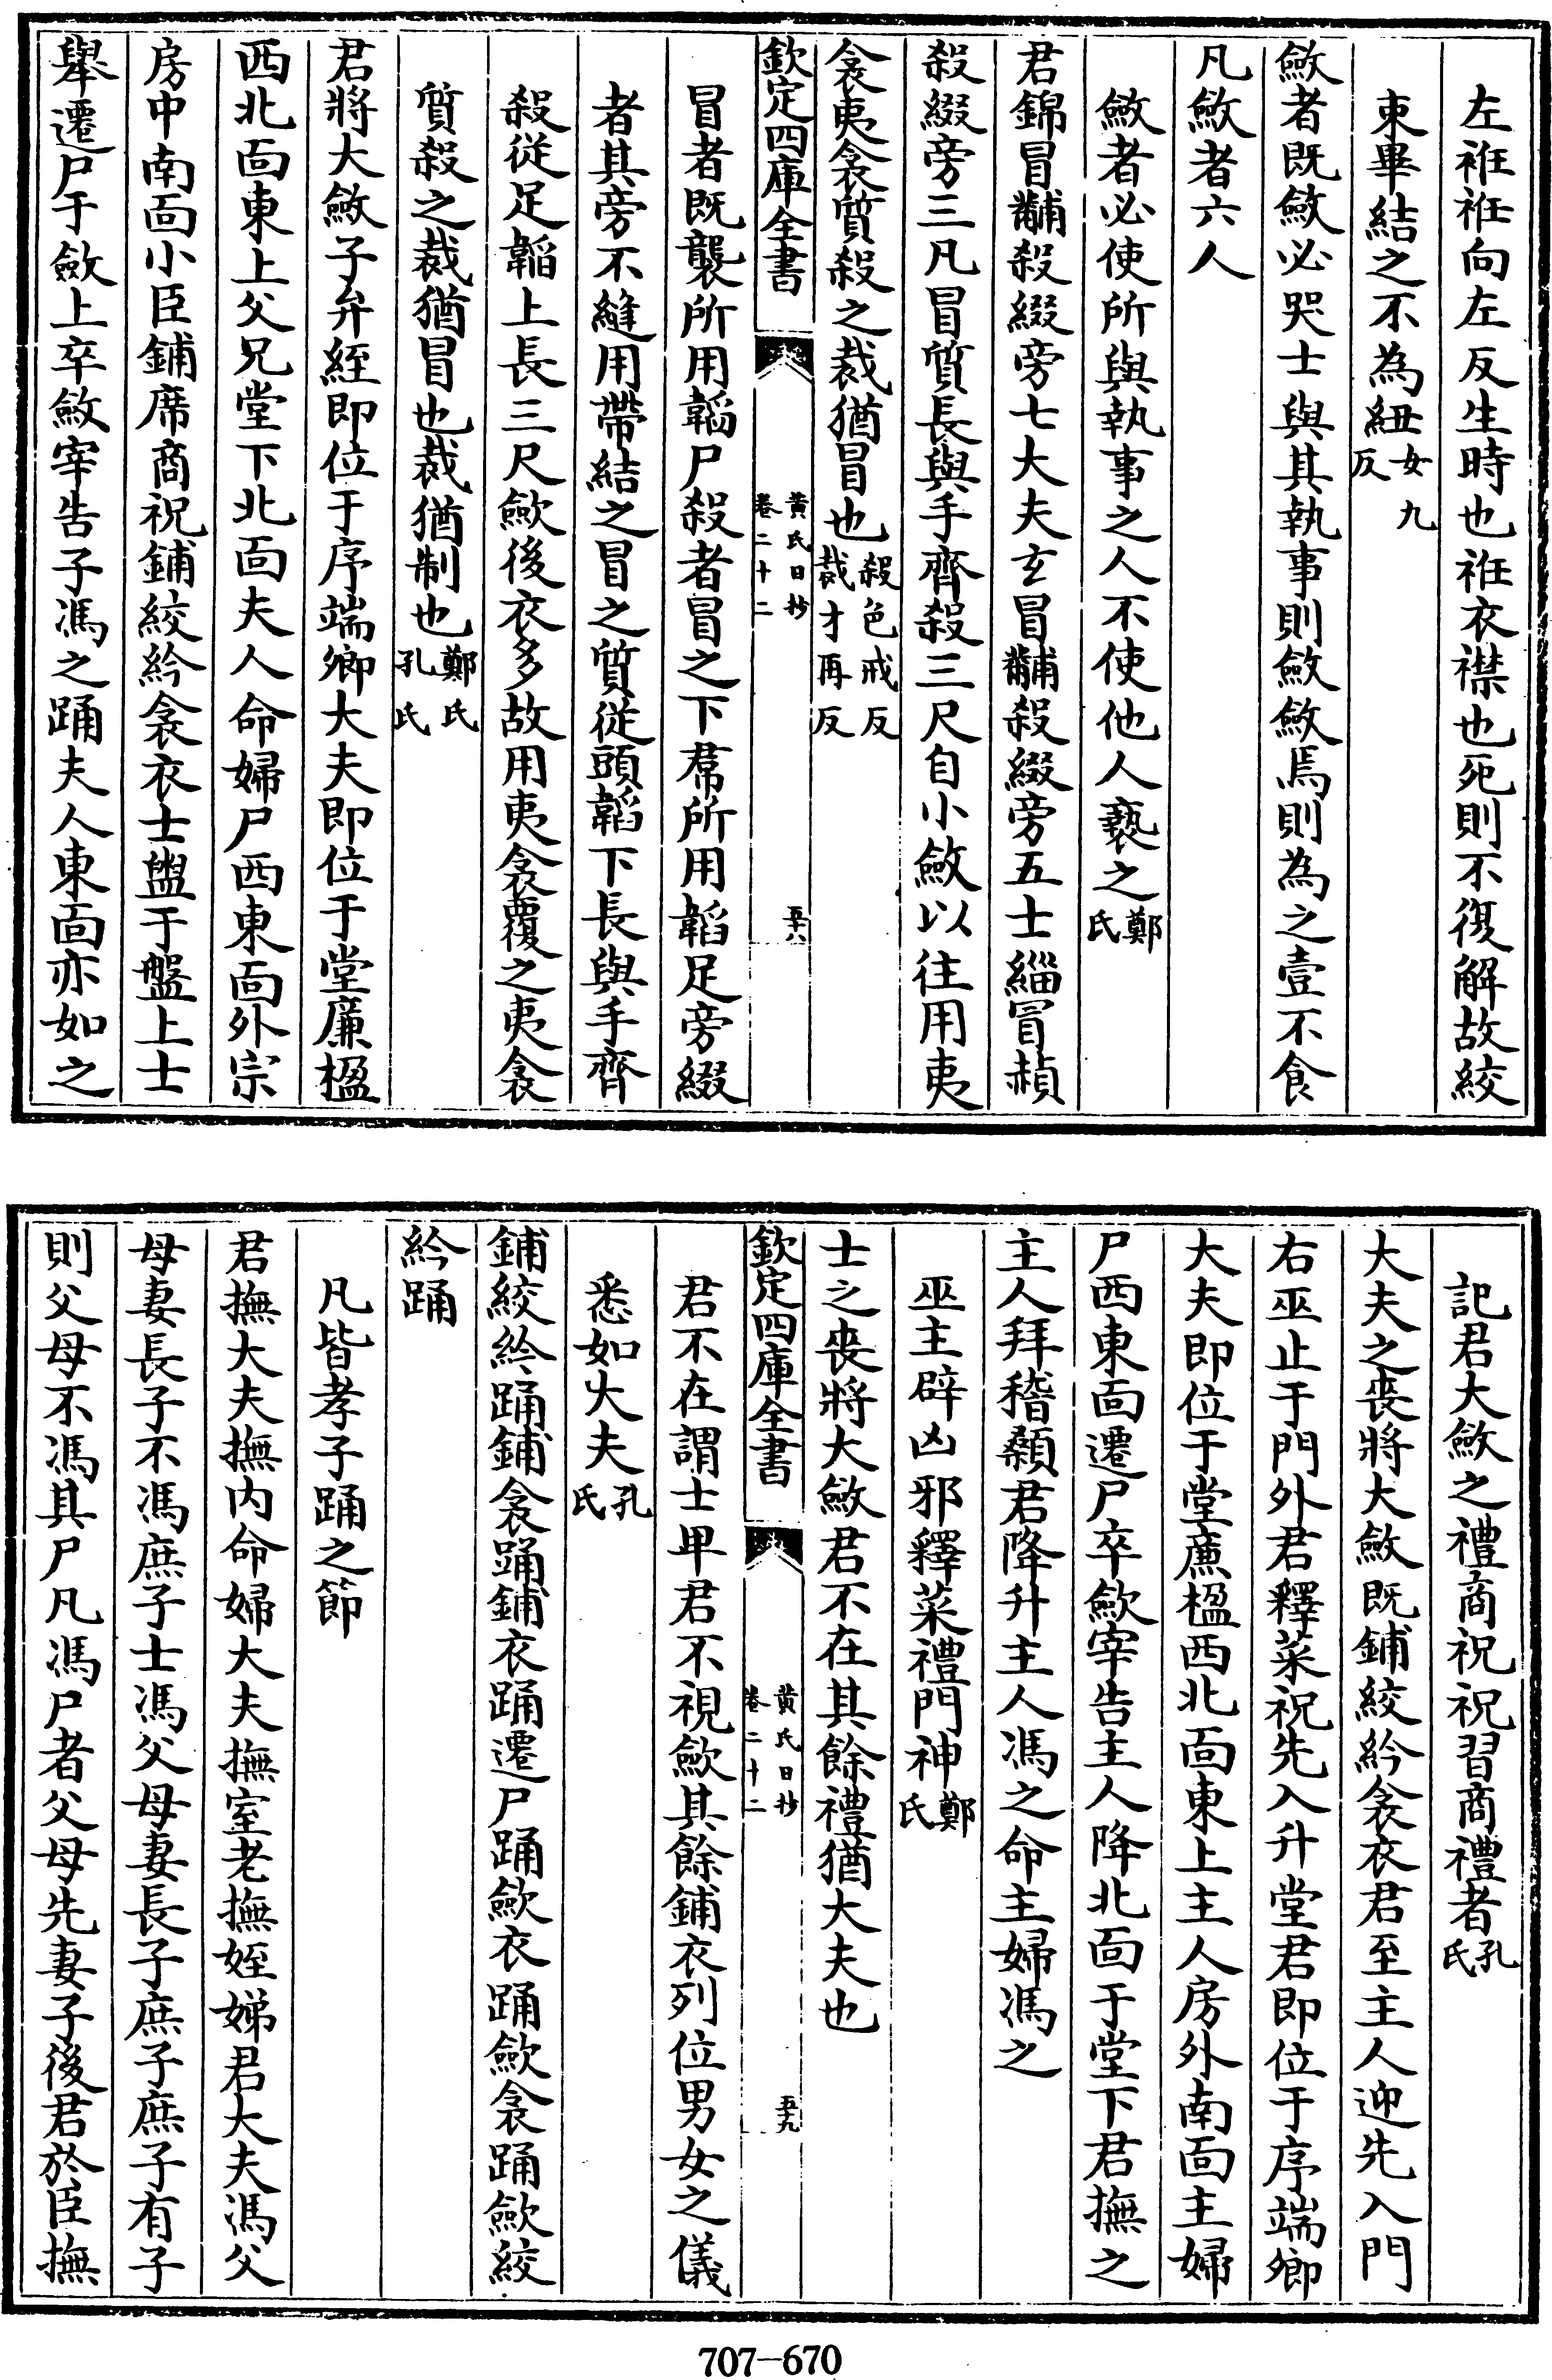 左衽衽向左反生時也衽衣襟也死則不復解故絞
束畢結之不為紐女九反
斂者既斂必哭士與其執事則斂斂焉則為之壹不食
凡斂者六人
斂者必使所與執事之人不使他人褻之鄭氏
君錦冒黼殺綴旁七大夫玄冒黼殺綴旁五士緇冒赬
殺綴旁三凡冒質長與手齊殺三尺自小斂以往用夷
衾夷衾質殺之裁猶冒也殺色戒反裁才再反
欽定四庫全書
黄氏日抄
卷二十二
五十八
冒者既襲所用韜尸殺者冒之下帬所用韜足旁綴
者其旁不縫用帶結之冒之質從頭韜下長與手齊
殺從足韜上長三尺歛後衣多故用夷衾覆之夷衾
質殺之裁猶冒也裁猶制也鄭氏孔氏
君將大斂子弁絰即位于序端卿大夫即位于堂廉楹
西北面東上父兄堂下北面夫人命婦尸西東面外宗
房中南面小臣鋪席商祝鋪絞紟衾衣士盥于盤上士
舉遷尸于斂上卒斂宰告子馮之踊夫人東面亦如之
記君大斂之禮商祝祝習商禮者孔氏
大夫之喪將大斂既鋪絞紟衾衣君至主人迎先入門
右巫止于門外君釋菜祝先入升堂君即位于序端卿
大夫即位于堂廉楹西北面東上主人房外南面主婦
尸西東面遷尸卒歛宰告主人降北面于堂下君撫之
主人拜稽顙君降升主人馮之命主婦馮之
巫主辟凶邪釋菜禮門神鄭氏
士之喪將大斂君不在其餘禮猶大夫也
欽定四庫全書
黄氏日抄
卷二十二
五十九
君不在謂士卑君不視歛其餘鋪衣列位男女之儀
悉如大夫孔氏
鋪絞紟踊鋪衾踊鋪衣踊遷尸踊歛衣踊歛衾踊歛絞
紟踊
凡皆孝子踊之節
君撫大夫撫内命婦大夫撫室老撫姪娣君大夫馮父
母妻長子不馮庶子士馮父母妻長子庶子庶子有子
則父母不馮其尸凡馮尸者父母先妻子後君於臣撫
707-670